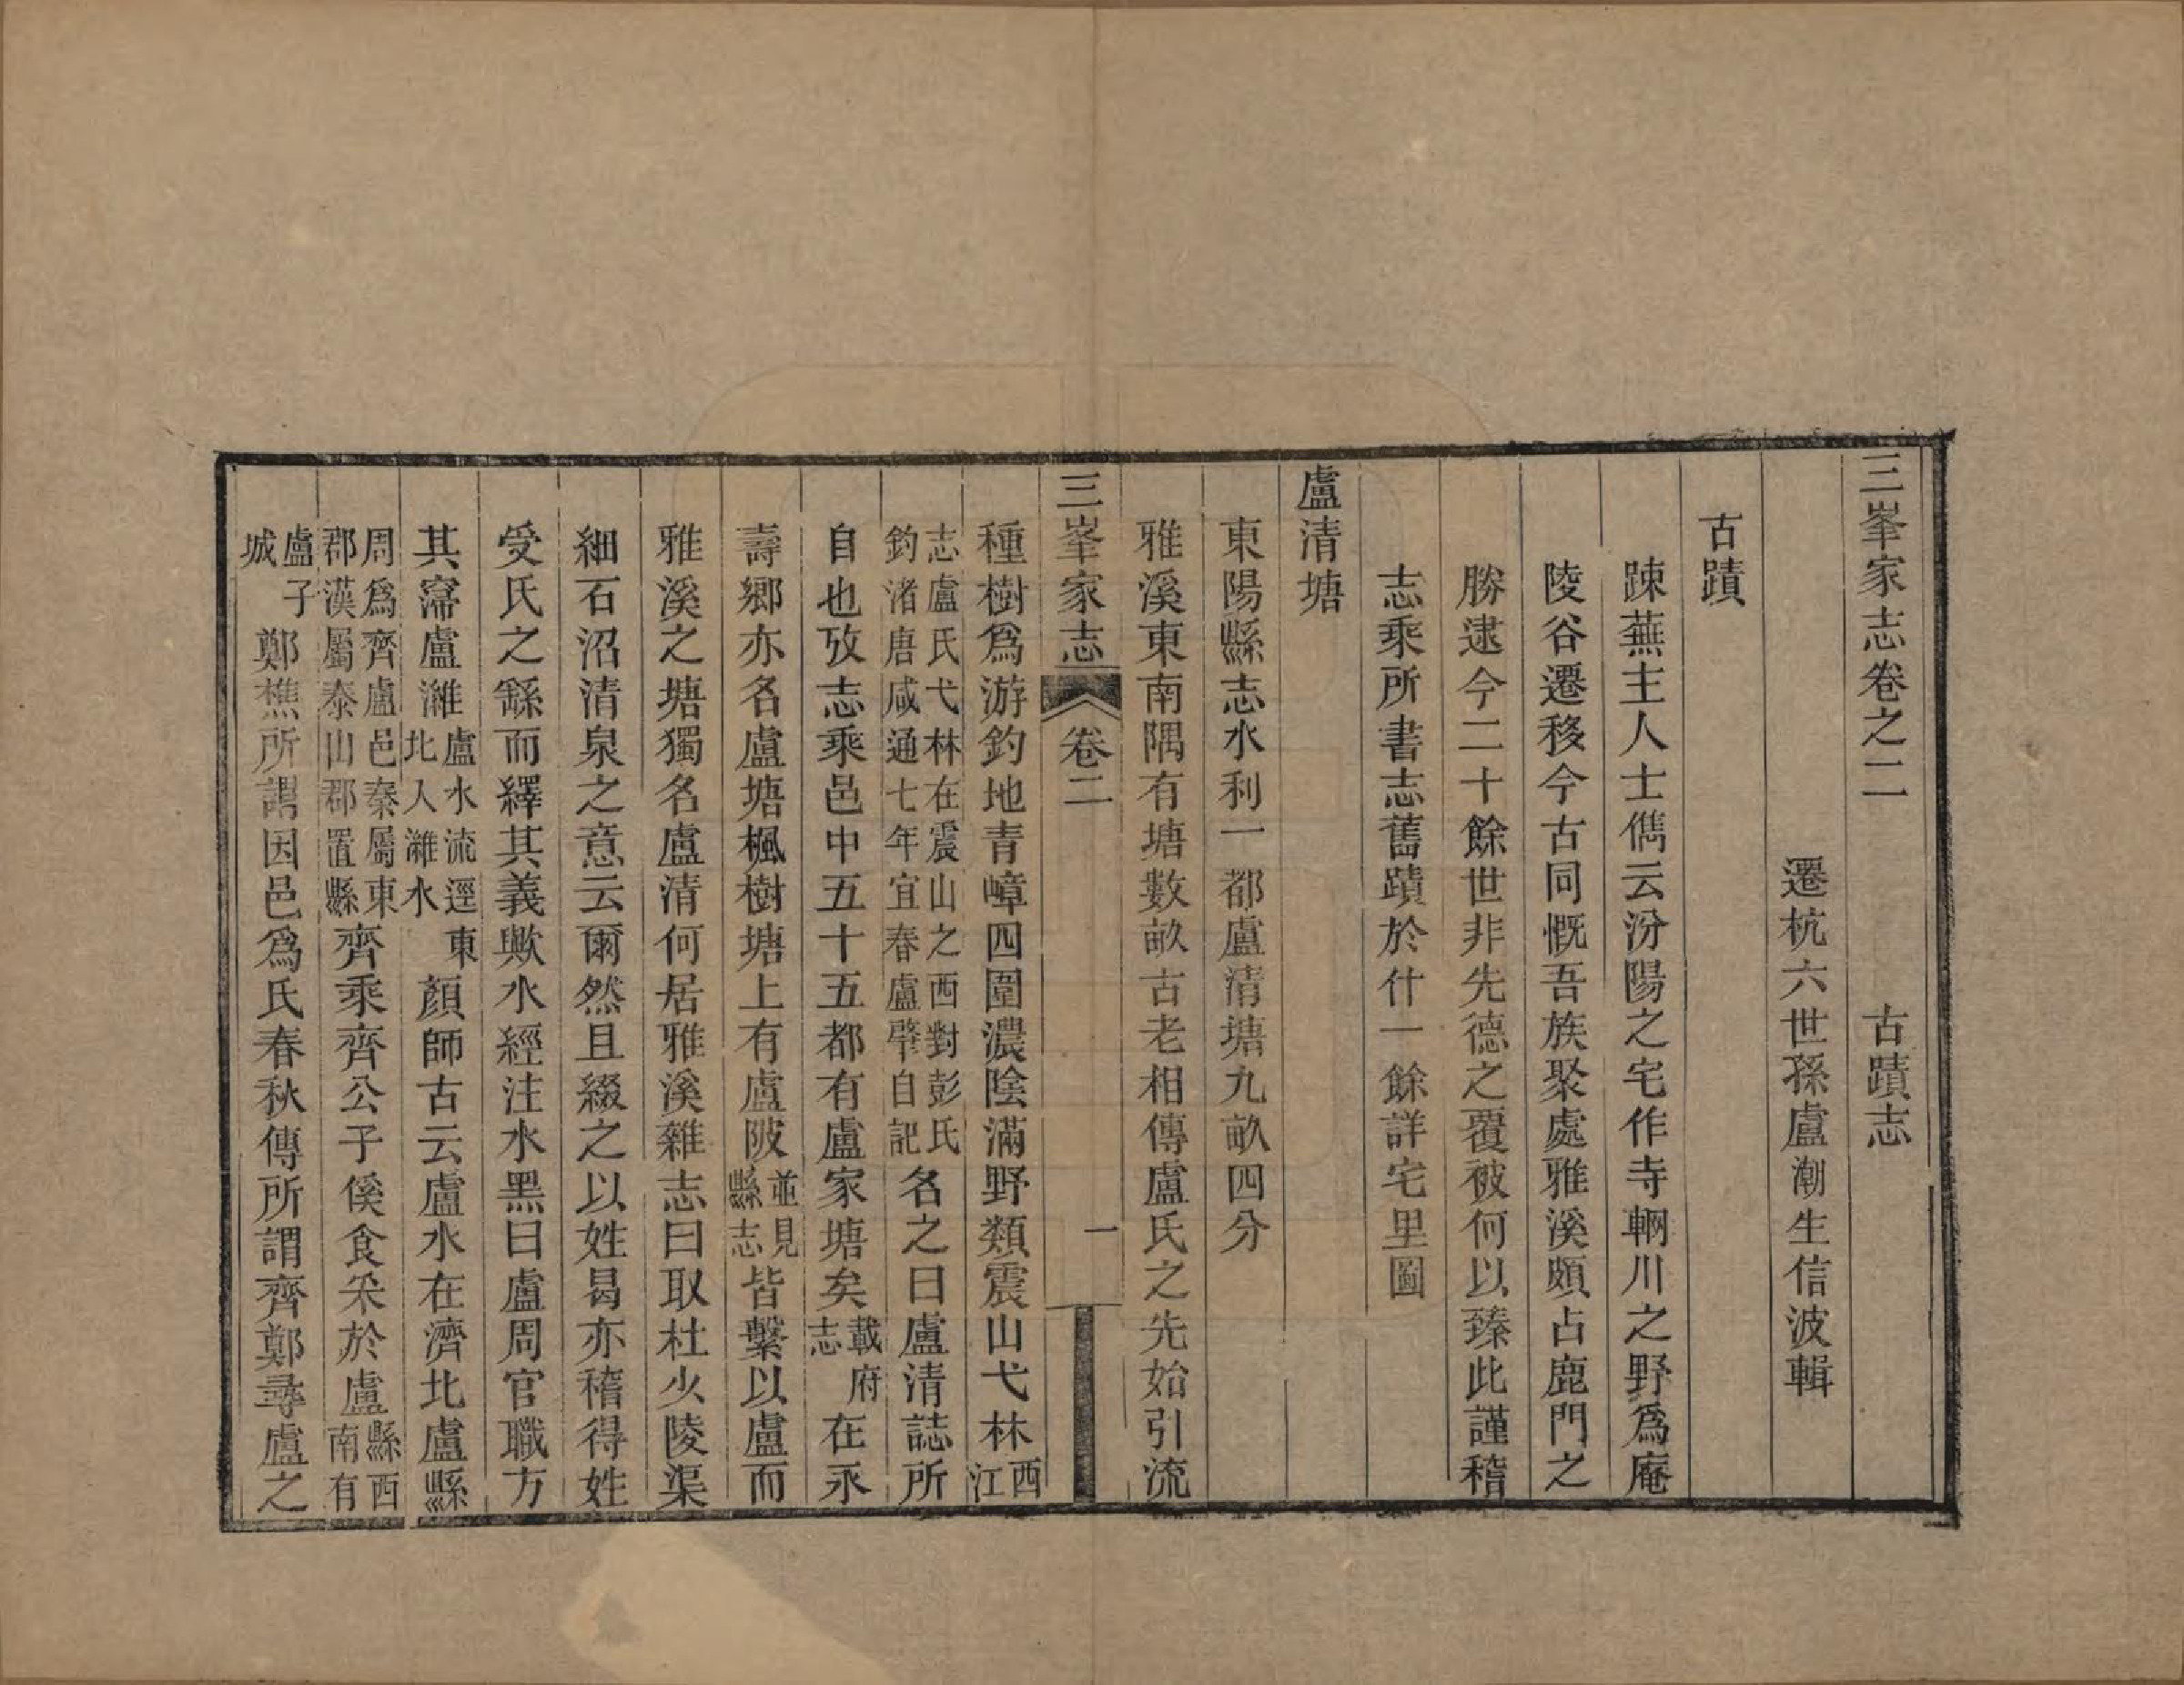 三峯家志卷之二　古蹟志
遷杭六世孫盧潮生信波輯
古蹟
踈蕪主人士儁云汾陽之宅作寺輞川之野爲庵
陵谷遷移今古同慨吾族聚處雅溪頗占鹿門之
勝逮今二十餘世非先德之覆被何以臻此謹稽
志乘所書志舊蹟於什一餘詳宅里圖
盧清塘
東陽縣志水利一都盧清塘九畝四分
雅溪東南隅有塘數畝古老相傳盧氏之先始引流
三峯家志　卷二　一
種樹爲游釣地青嶂四圍濃陰滿野類震山弋林西江
志盧氏弋林在震山之西對彭氏
釣渚唐咸通七年宜春盧肇自記名之曰盧清誌所
自也攷志乘邑中五十五都有盧家塘矣載府志在永
壽鄉亦名盧塘楓樹塘上有盧陂並見縣志皆繫以盧而
雅溪之塘獨名盧清何居雅溪雜志曰取杜少陵渠
細石沼清泉之意云爾然且綴之以姓曷亦稽得姓
受氏之繇而繹其義歟水經注水黑曰盧周官職方
其㵾盧濰盧水流逕東北入濰水顏師古云盧水在濟北盧縣
周爲齊盧邑秦屬東郡漢屬泰山郡置縣齊乘齊公子傒食采於盧縣西南有
盧子城鄭樵所謂因邑爲氏春秋傳所謂齊鄭尋盧之